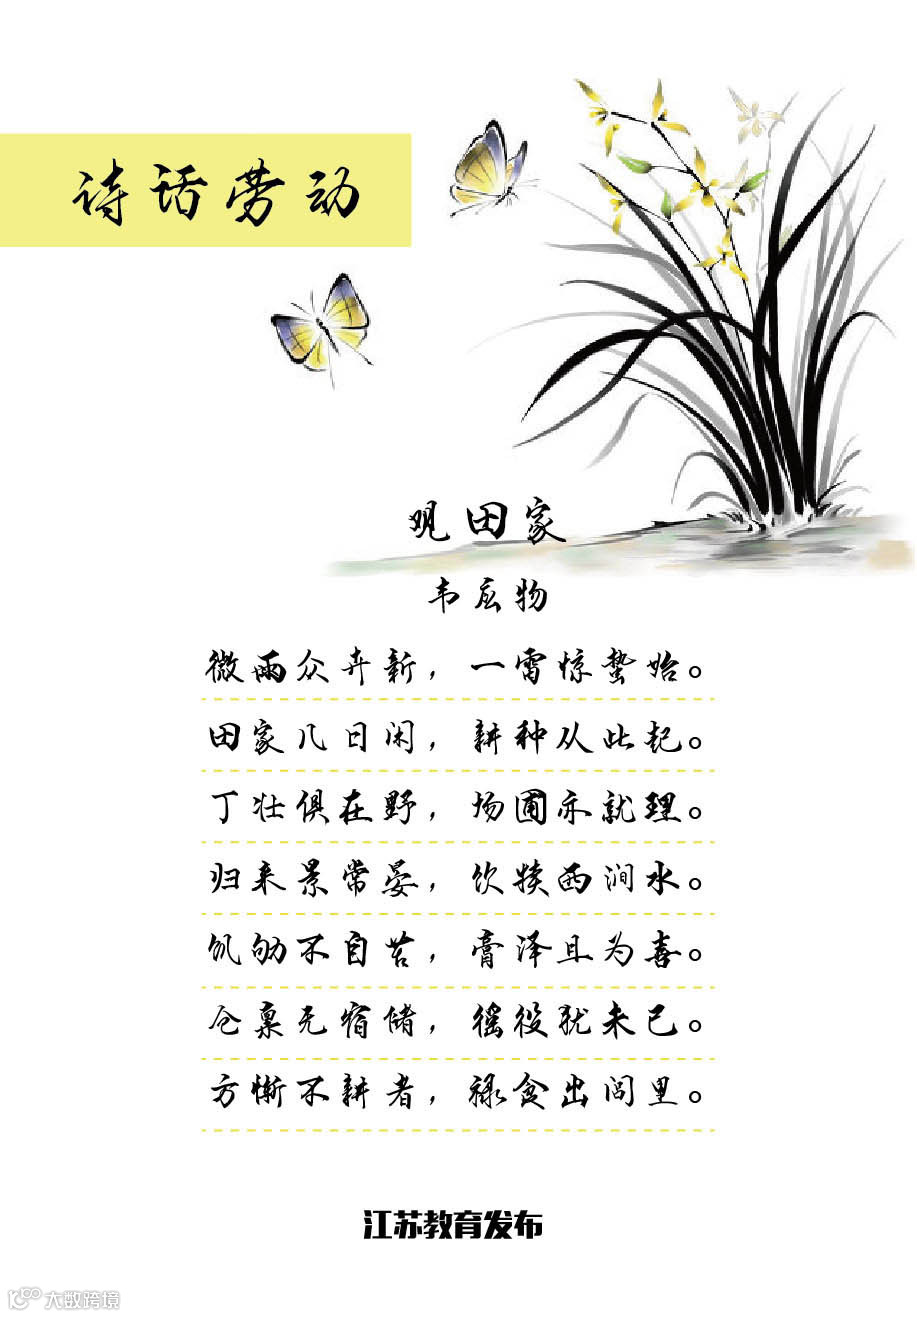 诗话劳动
观田家
韦应物
微雨众卉新，一雷惊蛰始。
田家几日闲，耕种从此起。
丁壮俱在野，场圃亦就理。
归来景常晏，饮犊西涧水。
饥劬不自苦，膏泽且为喜。
仓禀无宿储，徭役犹未已。
方惭不耕者，禄食出闾里。
江苏教育发布
大数跨境